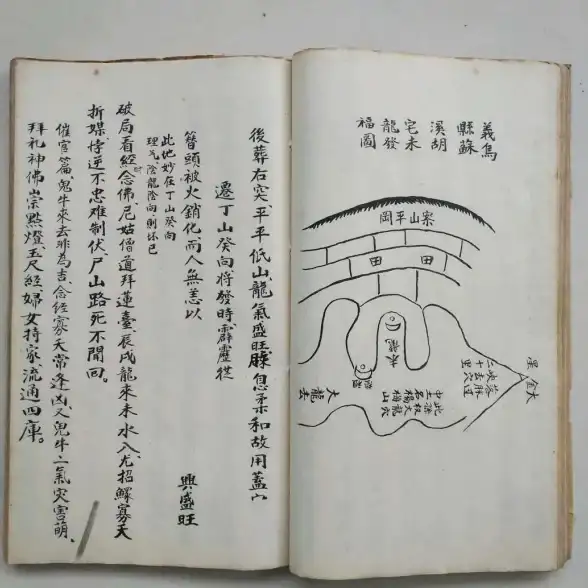 義烏
縣蘇
溪胡
宅未
龍發
福圖
案山平岡
田 田
未龍
大金星
落脉過
峽去穴
三十里
大龍去
後葬右突平平低山龍氣盛旺脉息柔和故用蓋穴
遷丁山癸向將發時霹靂從 興盛旺
簪頭被火銷化而人無恙以
此地妙在丁山癸向
理氣陰龍陰向則坏已
破局看經念佛尼姑僧道拜蓮臺辰戌龍來未水入尤招鰥寡夭
折媒悖逆不忠难制伏尸山路死不聞回。
催官篇鬼牛來去非為吉念經寡夭常逢凶又鬼牛二氣灾害萌、
拜礼神佛崇點燈玉尺經婦女持家流通四庫。